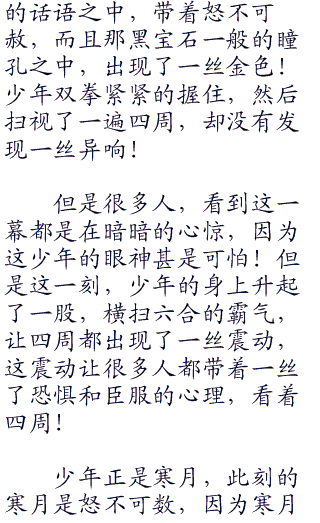 的话语之中，带着怒不可
赦，而且那黑宝石一般的瞳
孔之中，出现了一丝金色！
少年双拳紧紧的握住，然后
扫视了一遍四周，却没有发
现一丝异响！
但是很多人，看到这一
幕都是在暗暗的心惊，因为
这少年的眼神甚是可怕！但
是这一刻，少年的身上升起
了一股，横扫六合的霸气，
让四周都出现了一丝震动，
这震动让很多人都带着一丝
了恐惧和臣服的心理，看着
四周！
少年正是寒月，此刻的
寒月是怒不可数，因为寒月